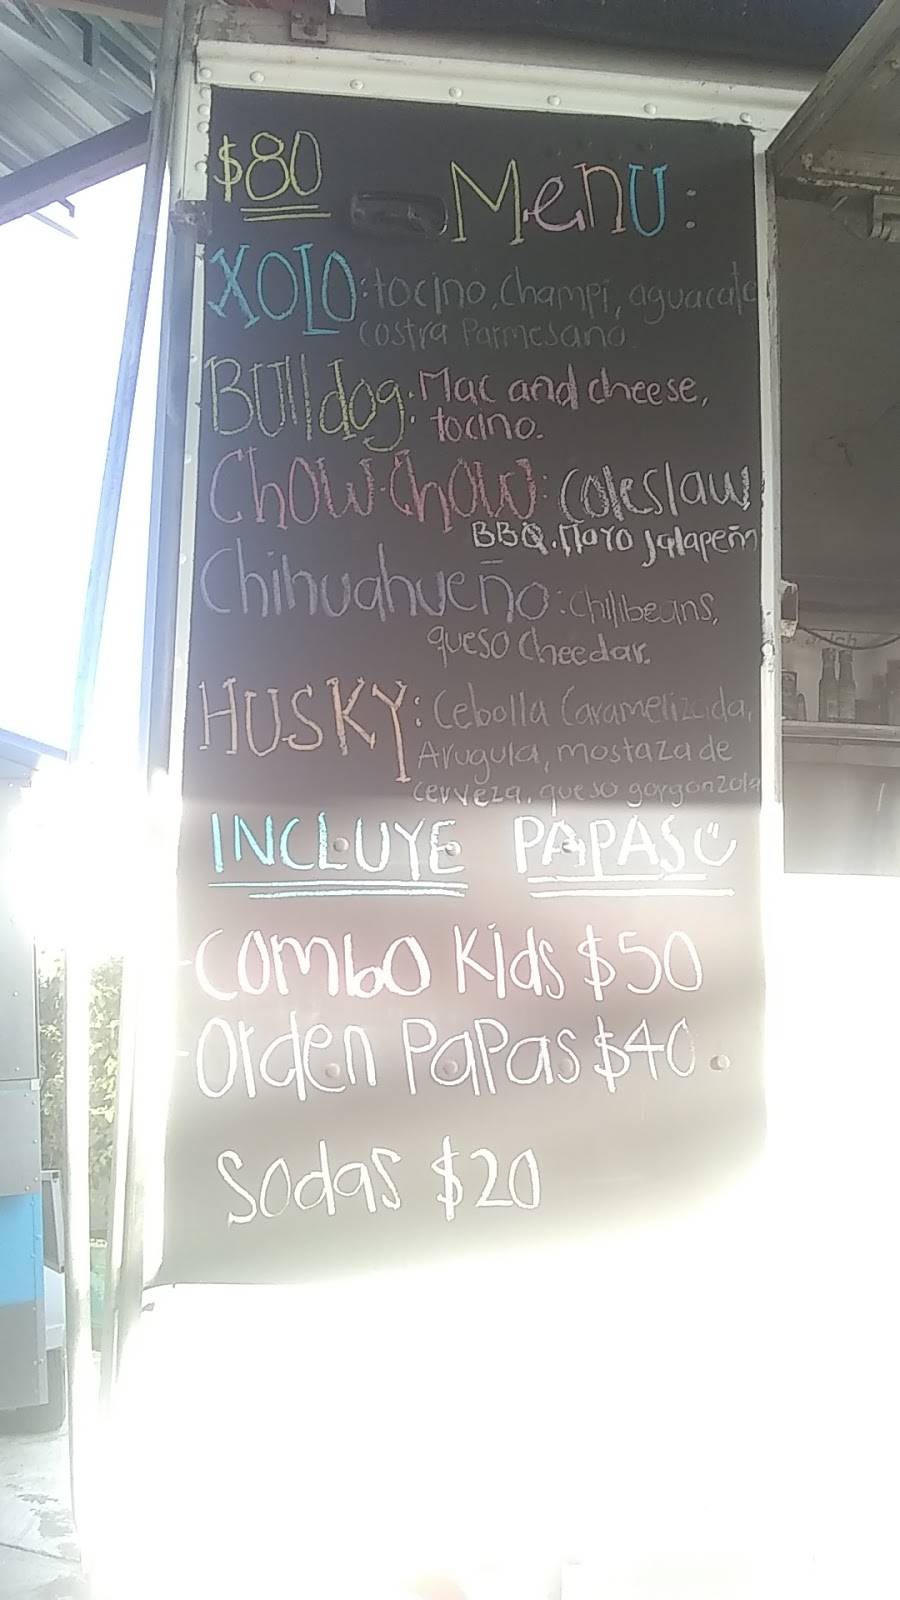 $80 Menu:
XOLO: tocino, champi, aguacate
costra Parmesano
Bulldog: Mac and cheese,
tocino.
Chow-Chow: Coleslaw
BBQ. Mayo Jalapeñ
Chihuahueño: Chilibeans,
queso Cheedar.
HUSKY: Cebolla Caramelizada,
Arugula, mostaza de
cerveza, queso gorgonzola
INCLUYE PAPAS
-Combo Kids $50
-Orden Papas $40.
Sodas $20